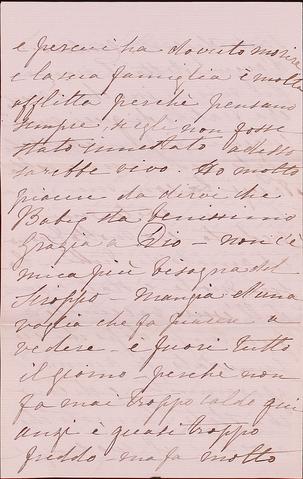 e perciò ha dovuto morire
e la sua famiglia è molto
afflitta perchè pensano
sempre, se egli non fosse
stato adesso
sarebbe vivo. Ho molto
piacere da dirvi che
Baby sta benissimo
grazia a Dio - non c'è
mica più bisogna del
Siroppo - mangia d'una
voglia che fa piacere a
vedere - è fuori tutto
il giorno - perchè non
fa mai troppo caldo qui
anzi è quasi troppo
freddo ma fa molto